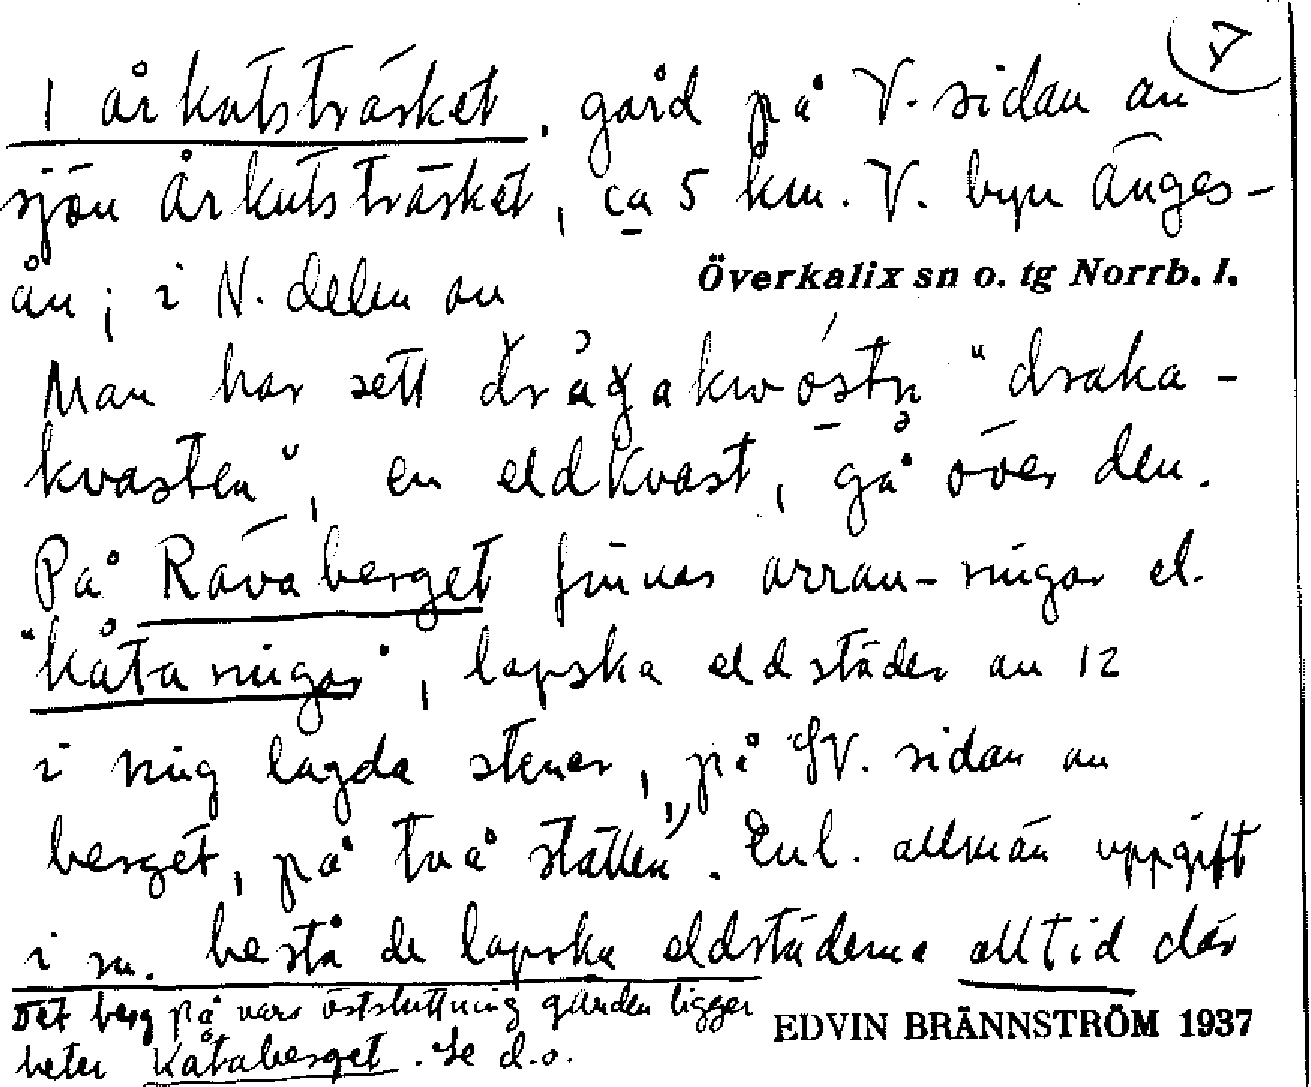 I Årkutsträsket, gård på V. sidan av
sjön Årkutsträsket, ca 5 km. V. byn Änges-
ån; i N. delen av
Överkalix sn o. tg Norrb. l.
Man har sett "draka-
kvasten", en eldkvast, gå över den.
På Rävaberget finnas arran-ringar el.
"kåtaringar", lapska eldstäder av 12
i ring lagda stenar, på SV. sidan av
berget, på två ställen. Enl. allmän uppgift
i sn. bestå de lapska eldstäderna alltid där
Det berg på vars östsluttning gården ligger
heter Kåtaberget. Se d.o.
EDVIN BRÄNNSTRÖM 1937